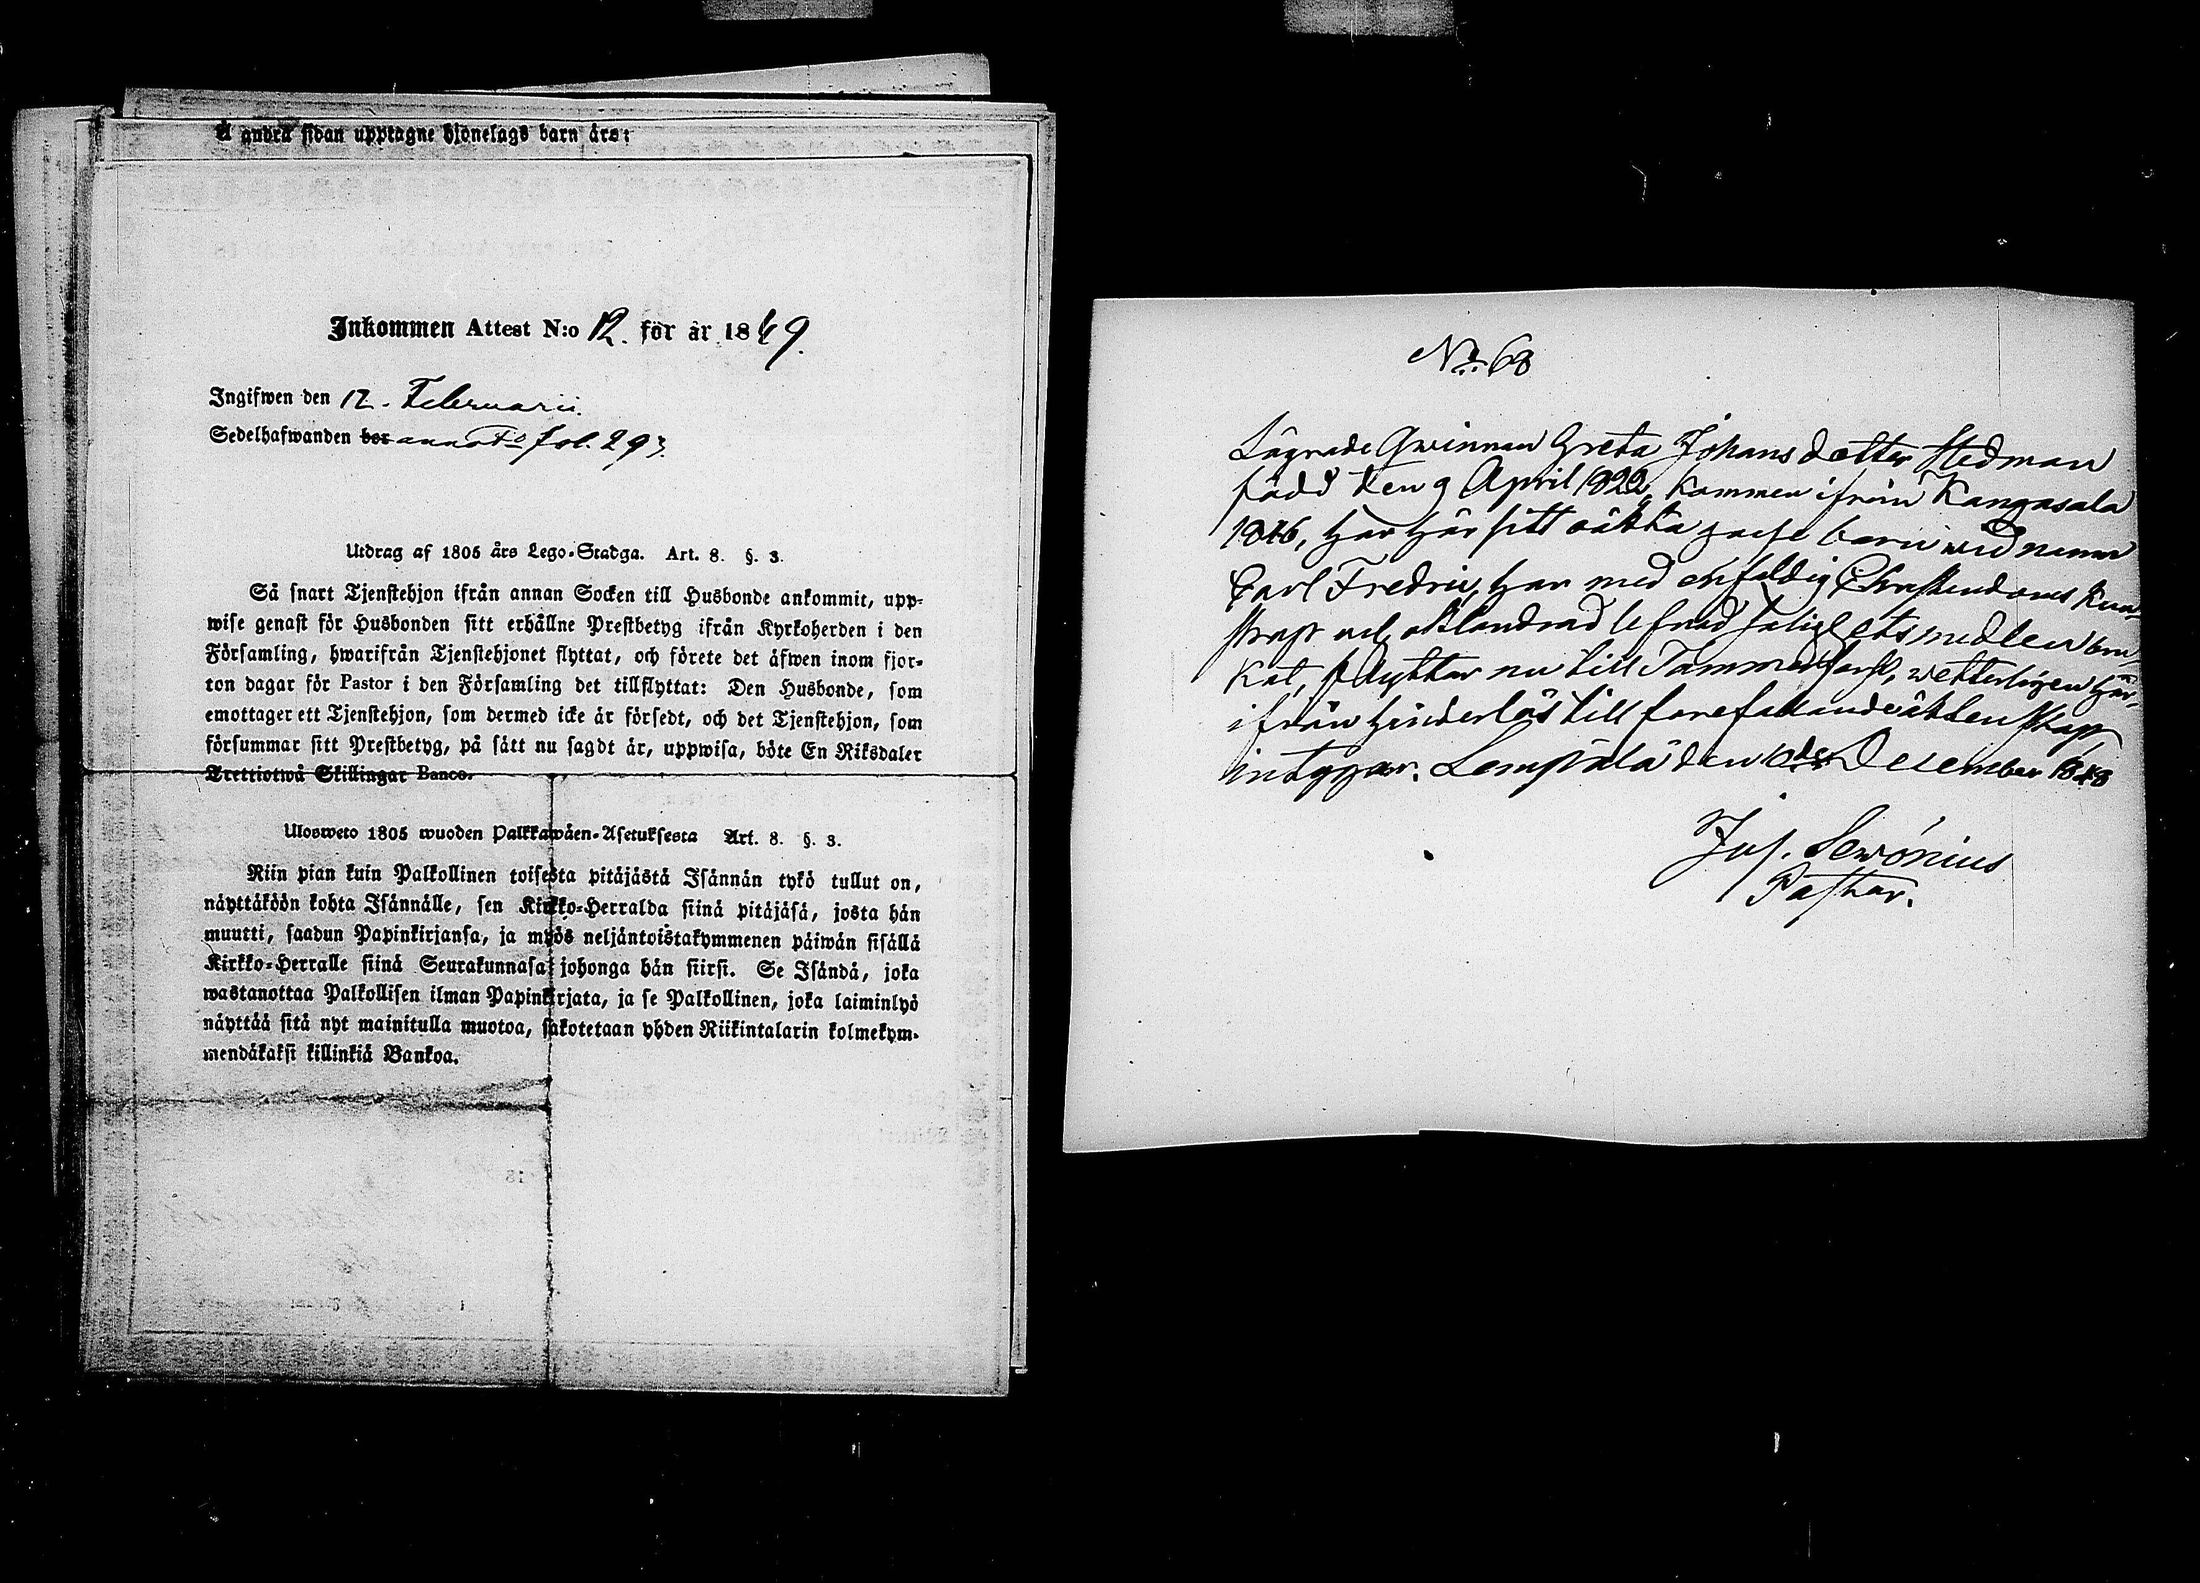 Å andra sidan upptagne hjonelags barn äro:
Inkommen Attest N:o 12. för år 1849.
Ingifwen den 12. Februarii.
Sedelhafwanden bor annot. fol. 293.
Utdrag af 1805 års Lego-Stadga. Art. 8. §. 3.
Så snart Tjenstehjon ifrån annan Socken till Husbonde ankommit, upp-
wise genast för Husbonden sitt erhållne Prestbetyg ifrån Kyrkoherden i den
Församling, hwarifrån Tjenstehjonet flyttat, och förete det äfwen inom fjor-
ton dagar för Pastor i den Församling det tillflyttat: Den Husbonde, som
emottager ett Tjenstehjon, som dermed icke är försedt, och det Tjenstehjon, som
försummar sitt Prestbetyg, på sätt nu sagdt är, uppwisa, böte En Riksdaler
Trettiotwå Skillingar Banco.
Ulosweto 1805 wuoden Palkkawäen-Asetuksesta Art. 8. §. 3.
Niin pian kuin Palkollinen toisesta pitäjästä Isännän tykö tullut on,
näyttäköön kohta Isännälle, sen Kirkko-Herralda siinä pitäjäsä, josta hän
muutti, saadun Papinkirjansa, ja myös neljäntoistakymmenen päiwän sisällä
Kirkko-Herralle siinä Seurakunnasa johonga hän siirsi. Se Isändä, joka
wastanottaa Palkollisen ilman Papinkirjata, ja se Palkollinen, joka laiminlyö
näyttää sitä nyt mainitulla muotoa, sakotetaan yhden Riikintalarin kolmekym-
mendäkaksi killinkiä Bankoa.
No 68
Lägrade Qwinnan Greta Johansdotter Stedman
född den 9 April 1822, kommen ifrån Kangasala
1846, har här sitt oäkta barn wid namn
Carl Fredric, har med enfaldig Christendoms kun-
skap och oklandrad lefnad salighetsmedlen bru-
kat, flyttar nu till Tammerfors, wetterligen här-
ifrån hinderlös till förefallande äktenskap
intygar. Lempälä den 10de December 1848
Jos. Sewónius
Pastor.